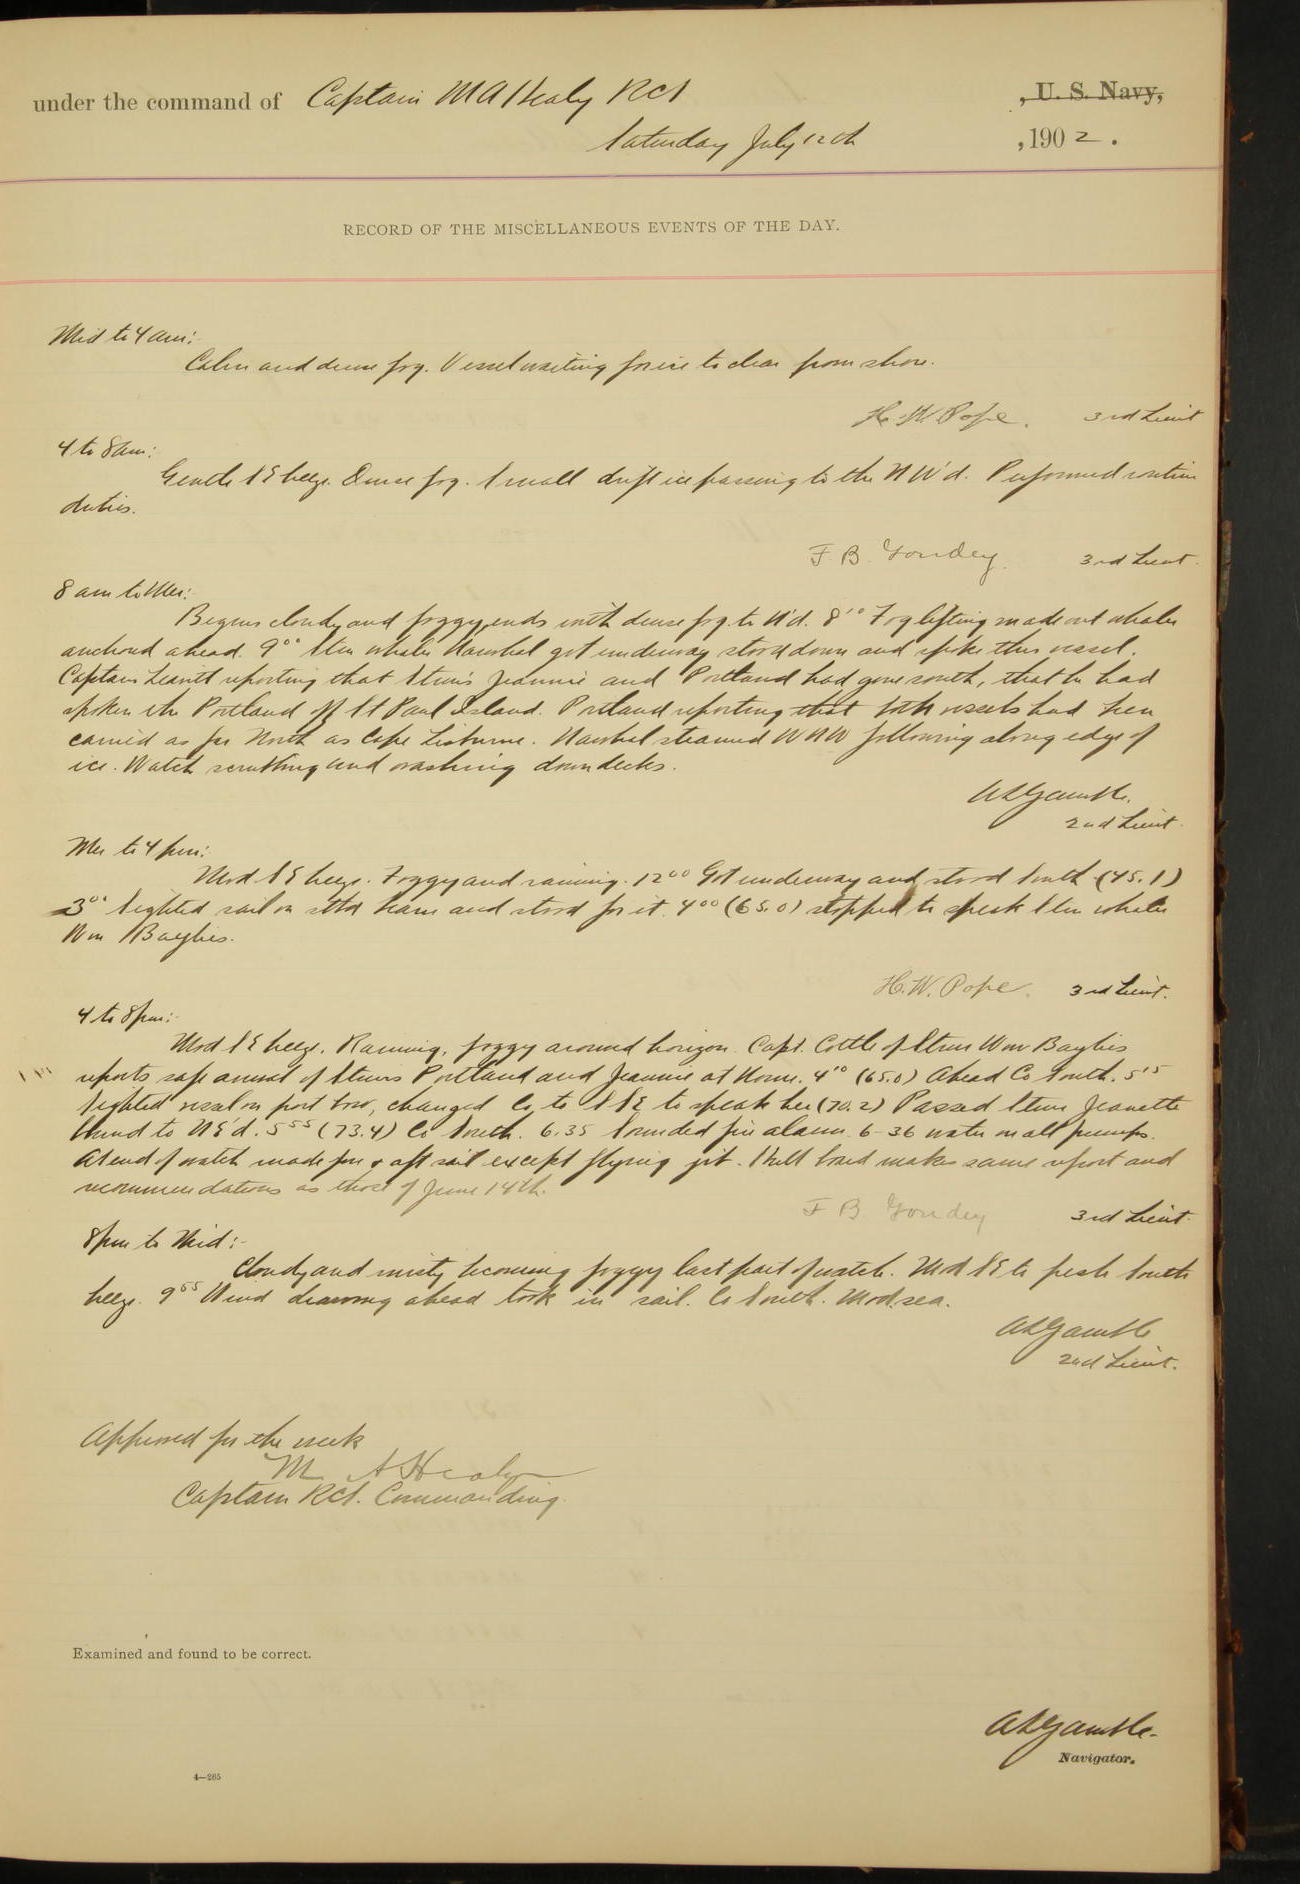 under the command of Captain M A Healy RCS , U. S. Navy,
Saturday July 12th , 1902 .
RECORD OF THE MISCELLANEOUS EVENTS OF THE DAY.
Mid to 4 am:
Calm and dense fog. Vessel waiting for ice to clear from shore.
H. W. Pope. 3rd Lieut
4 to 8 am:
Gentle SE breeze. Dense fog. Small drift ice passing to the NW'd. Performed routine
duties.
F. B. Goudey. 3rd Lieut.
8 am to Mer:
Begins cloudy and foggy, ends with dense fog to N'd. 8 10 Fog lifting made out whaler
anchored ahead. 9 00 Stm whaler Narwhal got underway stood down and spoke this vessel.
Captain Leavitt reporting that Stmrs Jeannie and Portland had gone south, that he had
spoken the Portland off St Paul Island. Portland reporting that both vessels had been
carried as far North as Cape Lisburne. Narwhal steamed WNW following along edge of
ice. Watch scrubbing and washing down decks.
A L Gamble.
2nd Lieut.
Mer to 4 pm:
Mod SE breeze. Foggy and raining. 12 00 Got underway and stood South (45.1)
3 00 Sighted sail on stbd beam and stood for it. 4 00 (65.0) stopped to speak Stm whaler
Wm Baylies.
H. W. Pope. 3rd Lieut.
4 to 8 pm:
Mod SE breeze. Raining, foggy around horizon. Capt. Cottle of Stmr Wm Baylies
reports safe arrival of Stmrs Portland and Jeannie at Nome. 4 10 (65.0) Ahead Co South. 5 15
Sighted vessel on port bow, changed Co. to SSE to speak her (70.2) Passed Stmr Jeanette
bound to NE'd. 5 55 (73.4) Co South. 6.35 Sounded fire alarm. 6-36 water on all pumps.
At end of watch made fore & aft sail except flying jib. Hull board makes same report and
recommendations as those of June 14th.
F B Goudey 3rd Lieut.
8 pm to Mid:-
Cloudy and misty becoming foggy last part of watch. Mod SE to fresh South
breeze. 9 55 Wind drawing ahead took in sail. Co South. Mod. sea.
A L Gamble
2nd Lieut.
Approved for the week
M A Healy
Captain RCS. Commanding.
Examined and found to be correct.
A L Gamble
Navigator.
4—265